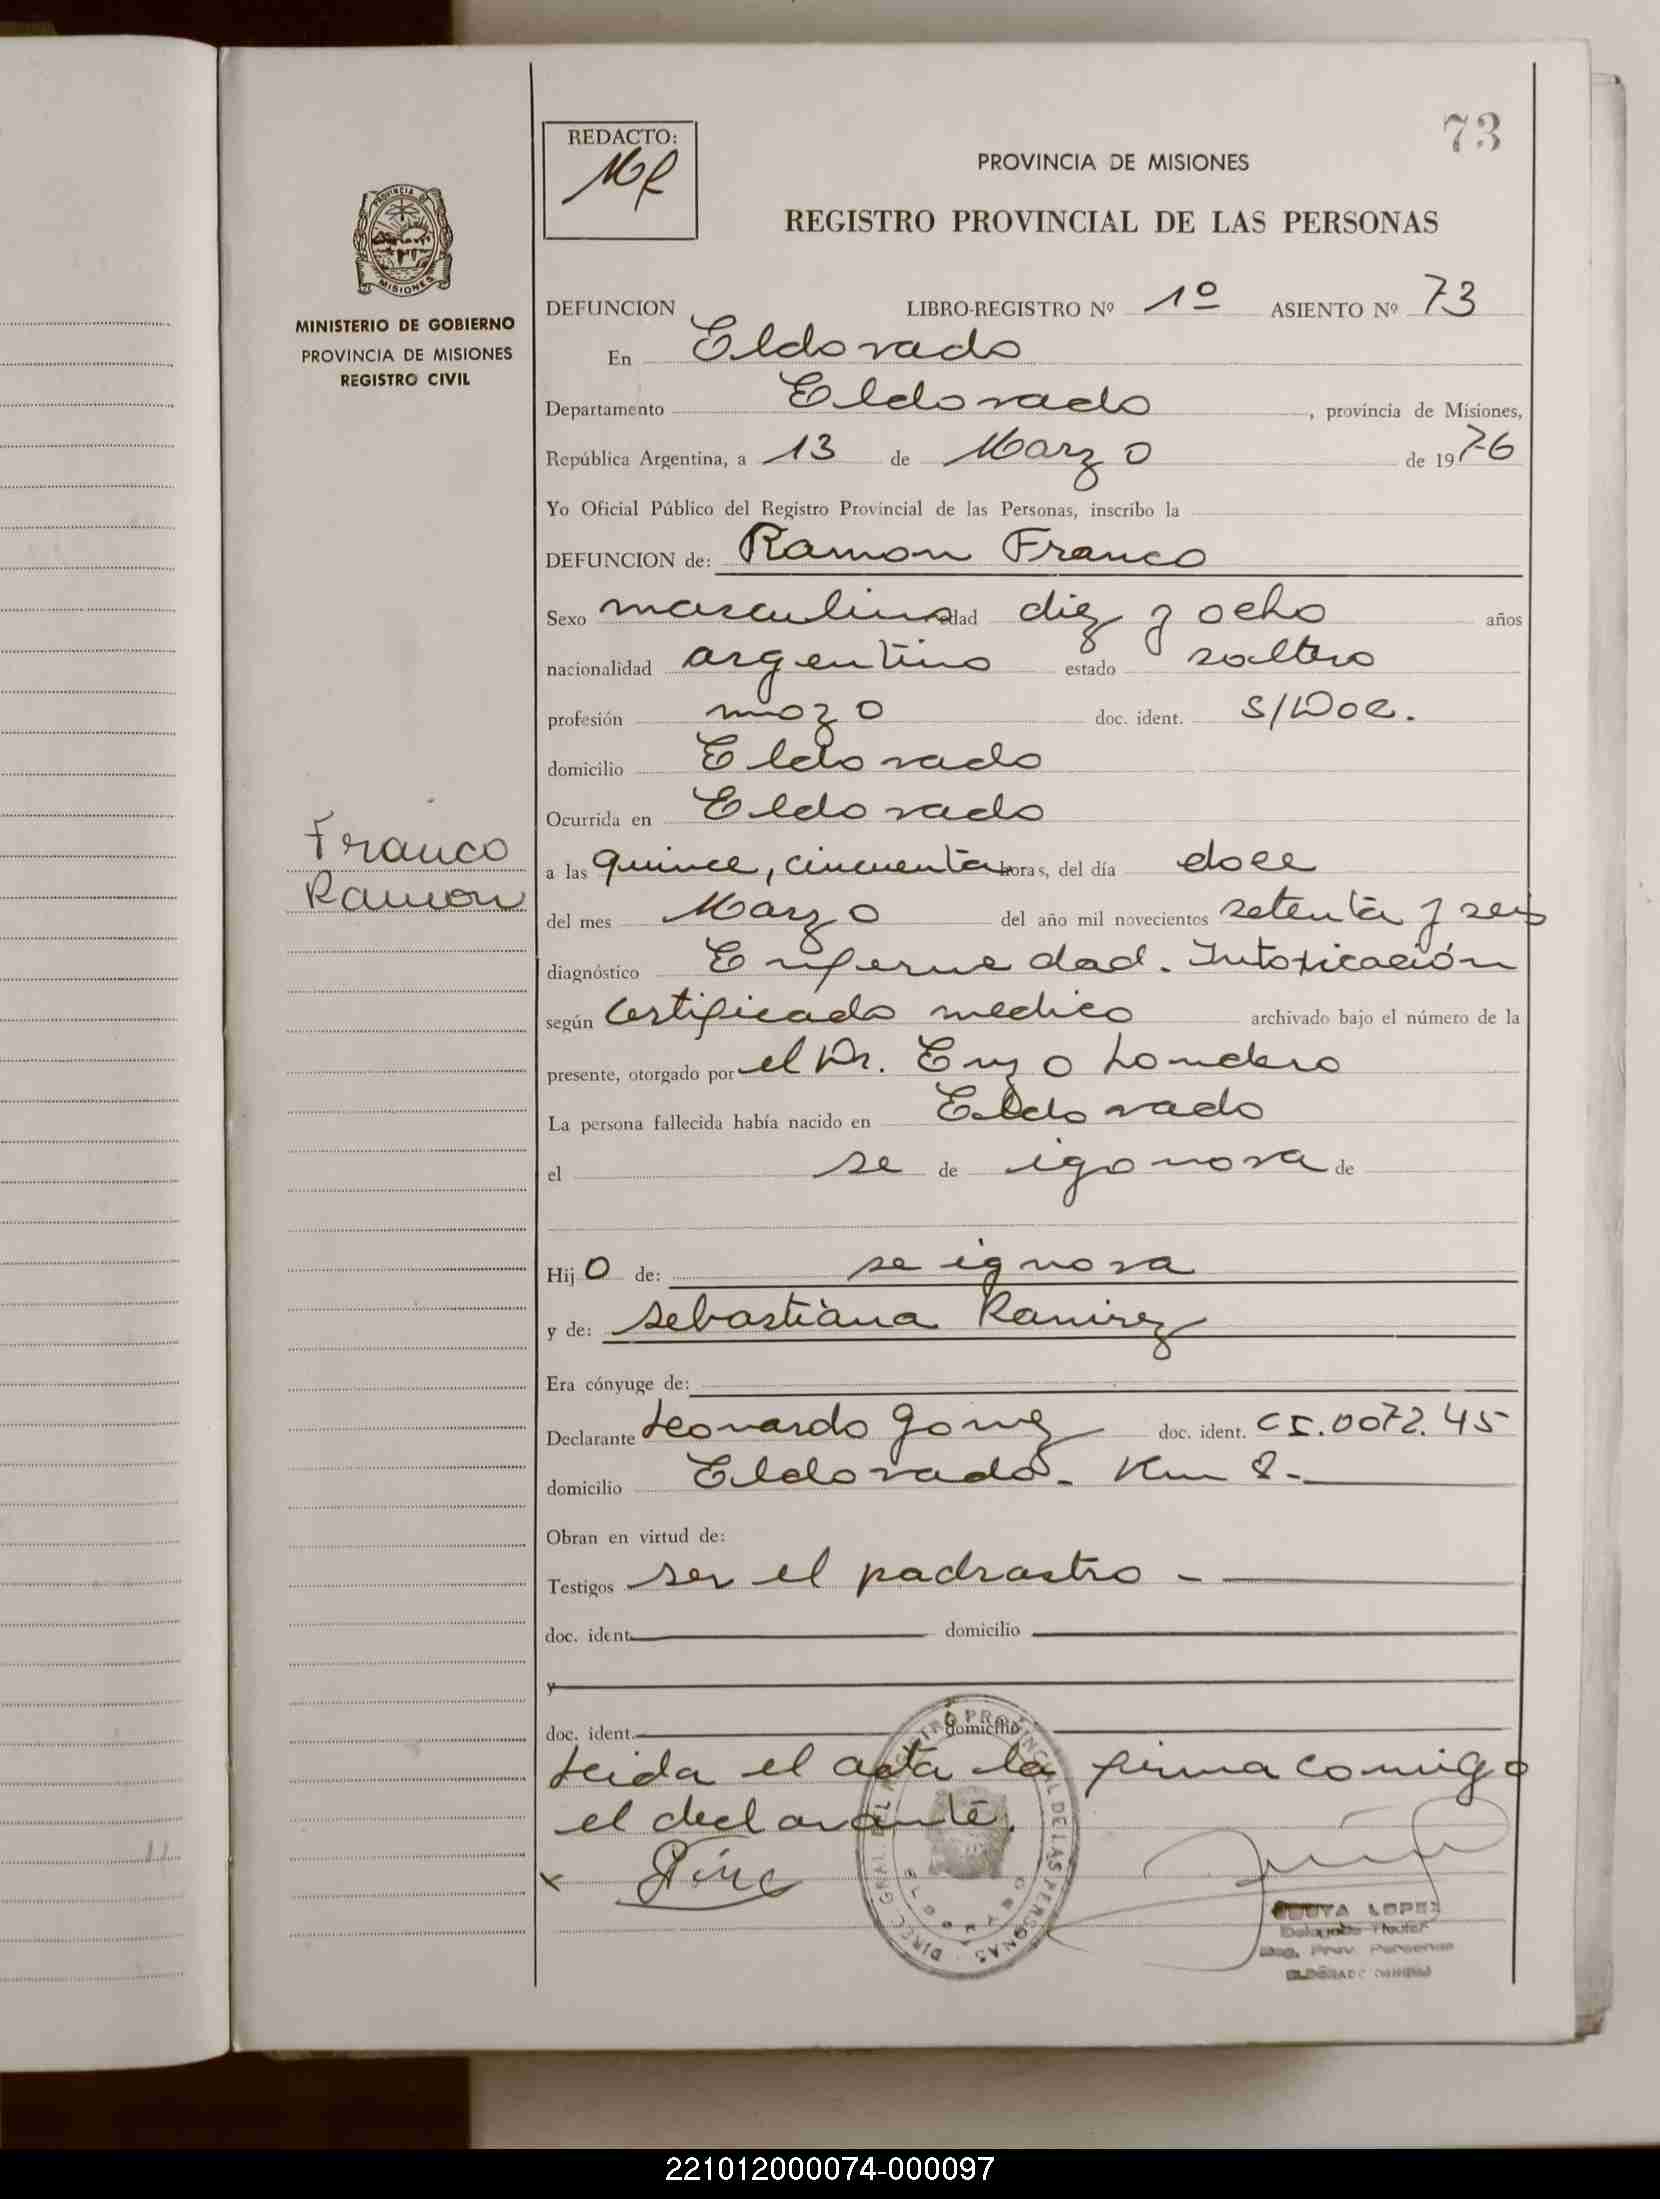 73
REDACTO:
PROVINCIA DE MISIONES
REGISTRO PROVINCIAL DE LAS PERSONAS
MINISTERIO DE GOBIERNO
PROVINCIA DE MISIONES
REGISTRO CIVIL
DEFUNCION LIBRO-REGISTRO Nº 1º ASIENTO Nº 73
En Eldorado
Departamento Eldorado, provincia de Misiones,
República Argentina, a 13 de Marzo de 1976
Yo Oficial Público del Registro Provincial de las Personas, inscribo la
DEFUNCION de: Ramon Franco
Sexo masculino edad diez y ocho años
nacionalidad argentino estado soltero
profesión mozo doc. ident. S/Doc.
domicilio Eldorado
Ocurrida en Eldorado
Franco
Ramon
a las quince, cincuenta horas, del día doce
del mes Marzo del año mil novecientos setenta y seis
diagnóstico Enfermedad. Intoxicación
según Certificado medico archivado bajo el número de la
presente, otorgado por el Dr. Enzo Londero
La persona fallecida había nacido en Eldorado
el se de igonora de
Hijo de: se ignora
y de: Sebastiana Ramirez
Era cónyuge de:
Declarante Leonardo Gomez doc. ident. CI.0072.45
domicilio Eldorado - Km 8-
Obran en virtud de:
Testigos ser el padrastro -
doc. ident. domicilio
y
doc. ident. domicilio
Leida el acta la firma comigo
el declarante.
x
DIREC. GRAL. DEL REGISTRO PROVINCIAL DE LAS PERSONAS
ELDORADO
LOPEZ
221012000074-000097